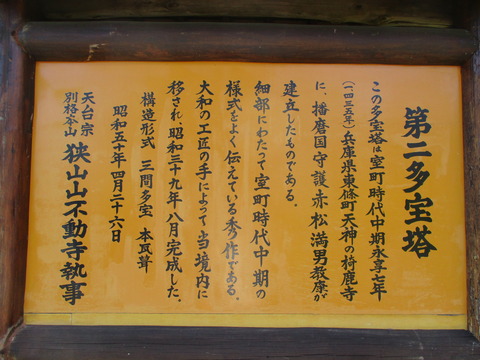 第二多宝塔
この多宝塔は室町時代中期永享七年
(一四三五年)兵庫県東條町天神の椅鹿寺
に、播磨国守護赤松満男教康が
建立したものである。
細部にわたって室町時代中期の
様式をよく伝えている秀作である。
大和の工匠の手によって当境内に
移され、昭和三十九年八月完成した。
構造形式 三間多宝 本瓦葺
昭和五十年四月二十六日
天台宗
別格本山 狭山山不動寺執事